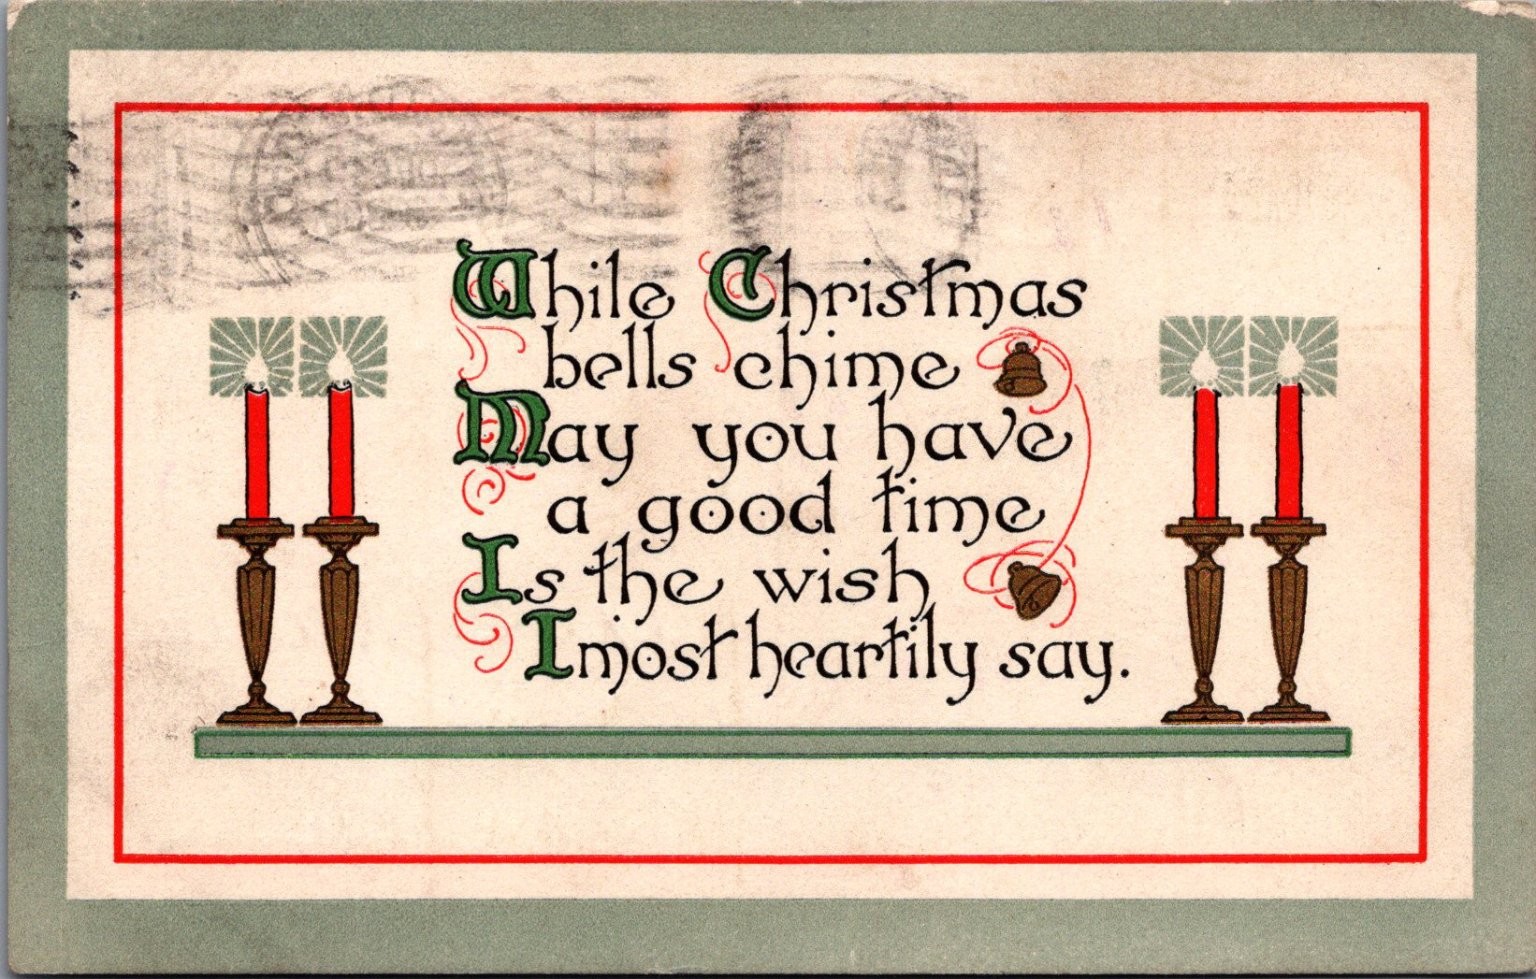 While Christmas
bells chime
May you have
a good time
Is the wish
I most heartily say.